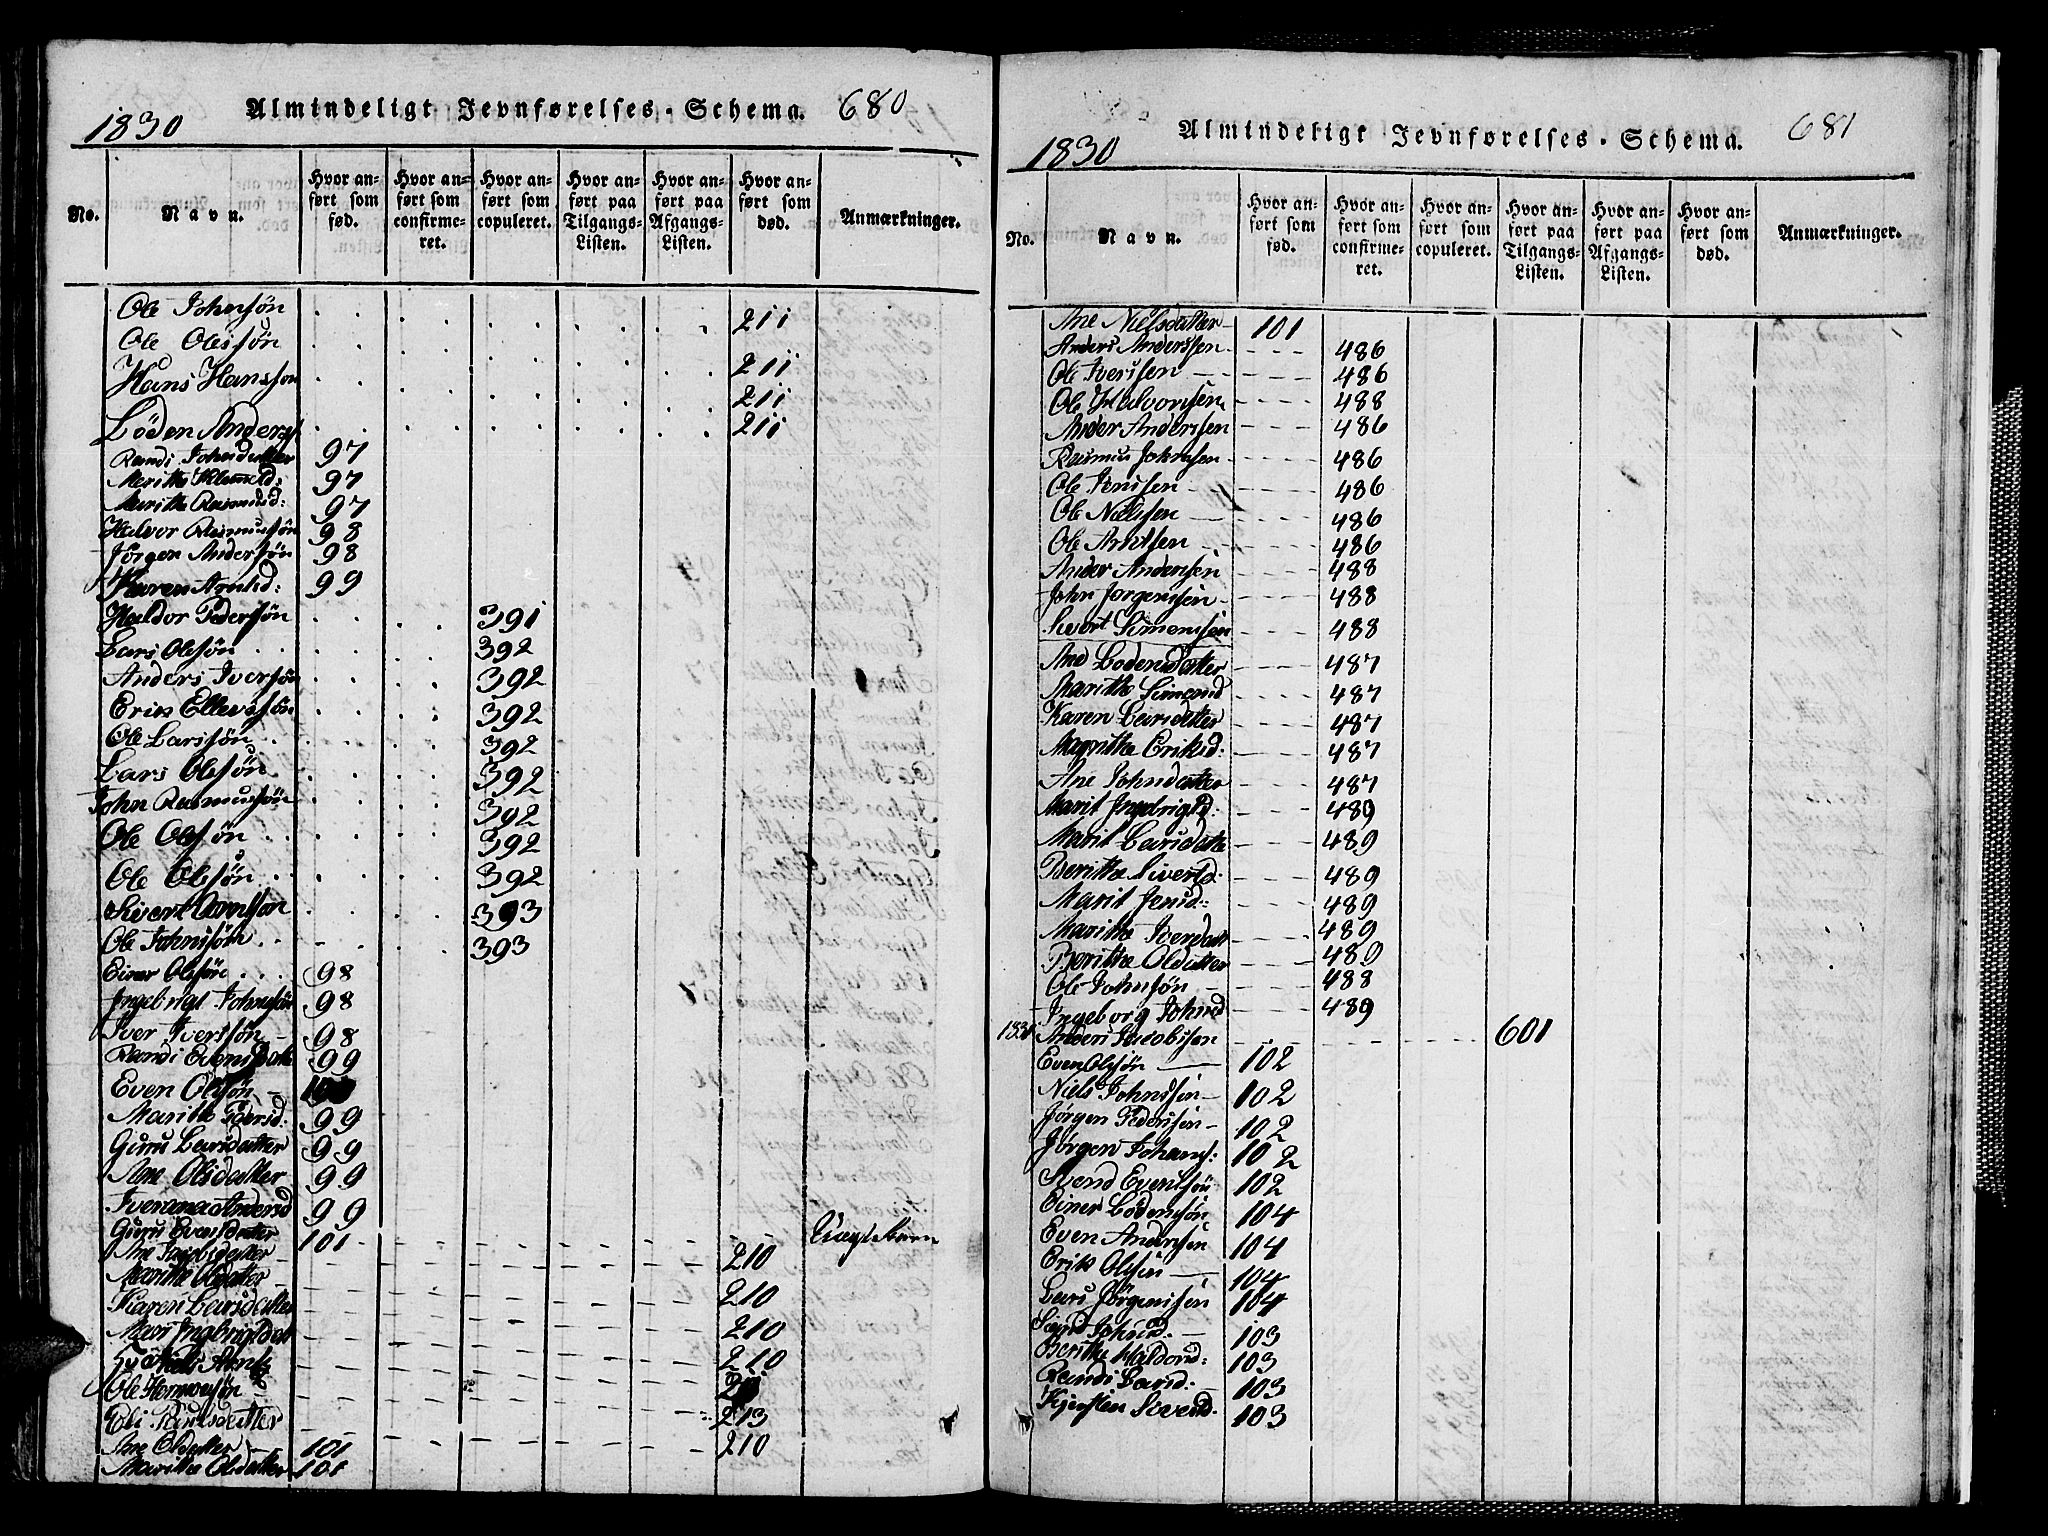 1830 Almindeligt Jevnførelses-Schema. 680
No. Navn. Hvor anført som fød. Hvor anført som confirmeret. Hvor anført som copuleret. Hvor anført paa Tilgangs-Listen. Hvor anført paa Afgangs-Listen. Hvor anført som død. Anmærkninger.
Ole Johnsøn 211
Ole Olessøn 211
Hans Hansson 211
Løden Anders 211
Randi Johnsdatter 97
Merithe 97
Marithe Rasmusd: 97
Halvor Rasmussøn 98
Jörgen Andersøn 98
Karen Arntsd: 99
Haldor Pedersøn 391
Lars Olesøn 392
Anders Iversøn 392
Erik Ellevssøn 392
Ole Larssøn 392
Lars Olesøn 392
John Rasmussøn 392
Ole Olesøn 392
Ole Olesøn 392
Sivert Arntsøn 393
Ole Johnssøn 393
Einer Olesøn 98
Ingebrigt Johnssøn 98
Iver Iverssøn 98
Randi Evensdatt 99
Even Olesøn
Marithe Pedersd: 99
Guru Larsdatter 99
Ane Olsdatter 99
Iverenna Andersd 99
Guru Evensdatter 101
Ane Jacobsdatter 210
Marithe Olsdatter 210
Karen Larsdatter 210
Mari Ingebrigtsdat 210
Ole
Eli 213
Ane Olsdatter 101 210
Marithe Olsdatter 101
1830 Almindeligt Jevnførelses-Schema. 681
No. Navn. Hvor anført som fød. Hvor anført som confirmeret. Hvor anført som copuleret. Hvor anført paa Tilgangs-Listen. Hvor anført paa Afgangs-Listen. Hvor anført som død. Anmærkninger.
Ane Nielsdatter 101
Anders Anderssen 486
Ole Iversen 486
Ole Halvorsen 488
Ander Anderssen 486
Rasmus Johnsen 486
Ole Jenssen 486
Ole Nielssen 486
Ole Arntsen 486
Ander Andersen 488
John Jørgenssen 488
Sivert Simensen 488
Ane Lodensdatter 487
Marithe Simensd 487
Karen Larsdatter 487
Magrithe Eriksd: 487
Ane Johnsdatter 487
Marit Ingebrigtsd: 489
Marit Larsdatt 489
Berithe Sivertsd. 489
Marit Jensd: 489
Marithe Iversdatt 489
Berithe Olsdatter 489
Ole Johnsøn 488
Ingeborg Johnsd 489
1831 Anders Jacobsen 601
Even Olsøn 102
Niels Johnssøn 102
Jørgen Pedersen 102
Jørgen Johans: 102
Svend Eventsøn 102
Einer Lodenssøn 104
Even Andersen 104
Erik Olsen 104
Lars Jørgenssen 104
Johnsd. 103
Berithe Haldorsd: 103
Randi Larsd: 103
Kjersten Sivertsd. 103